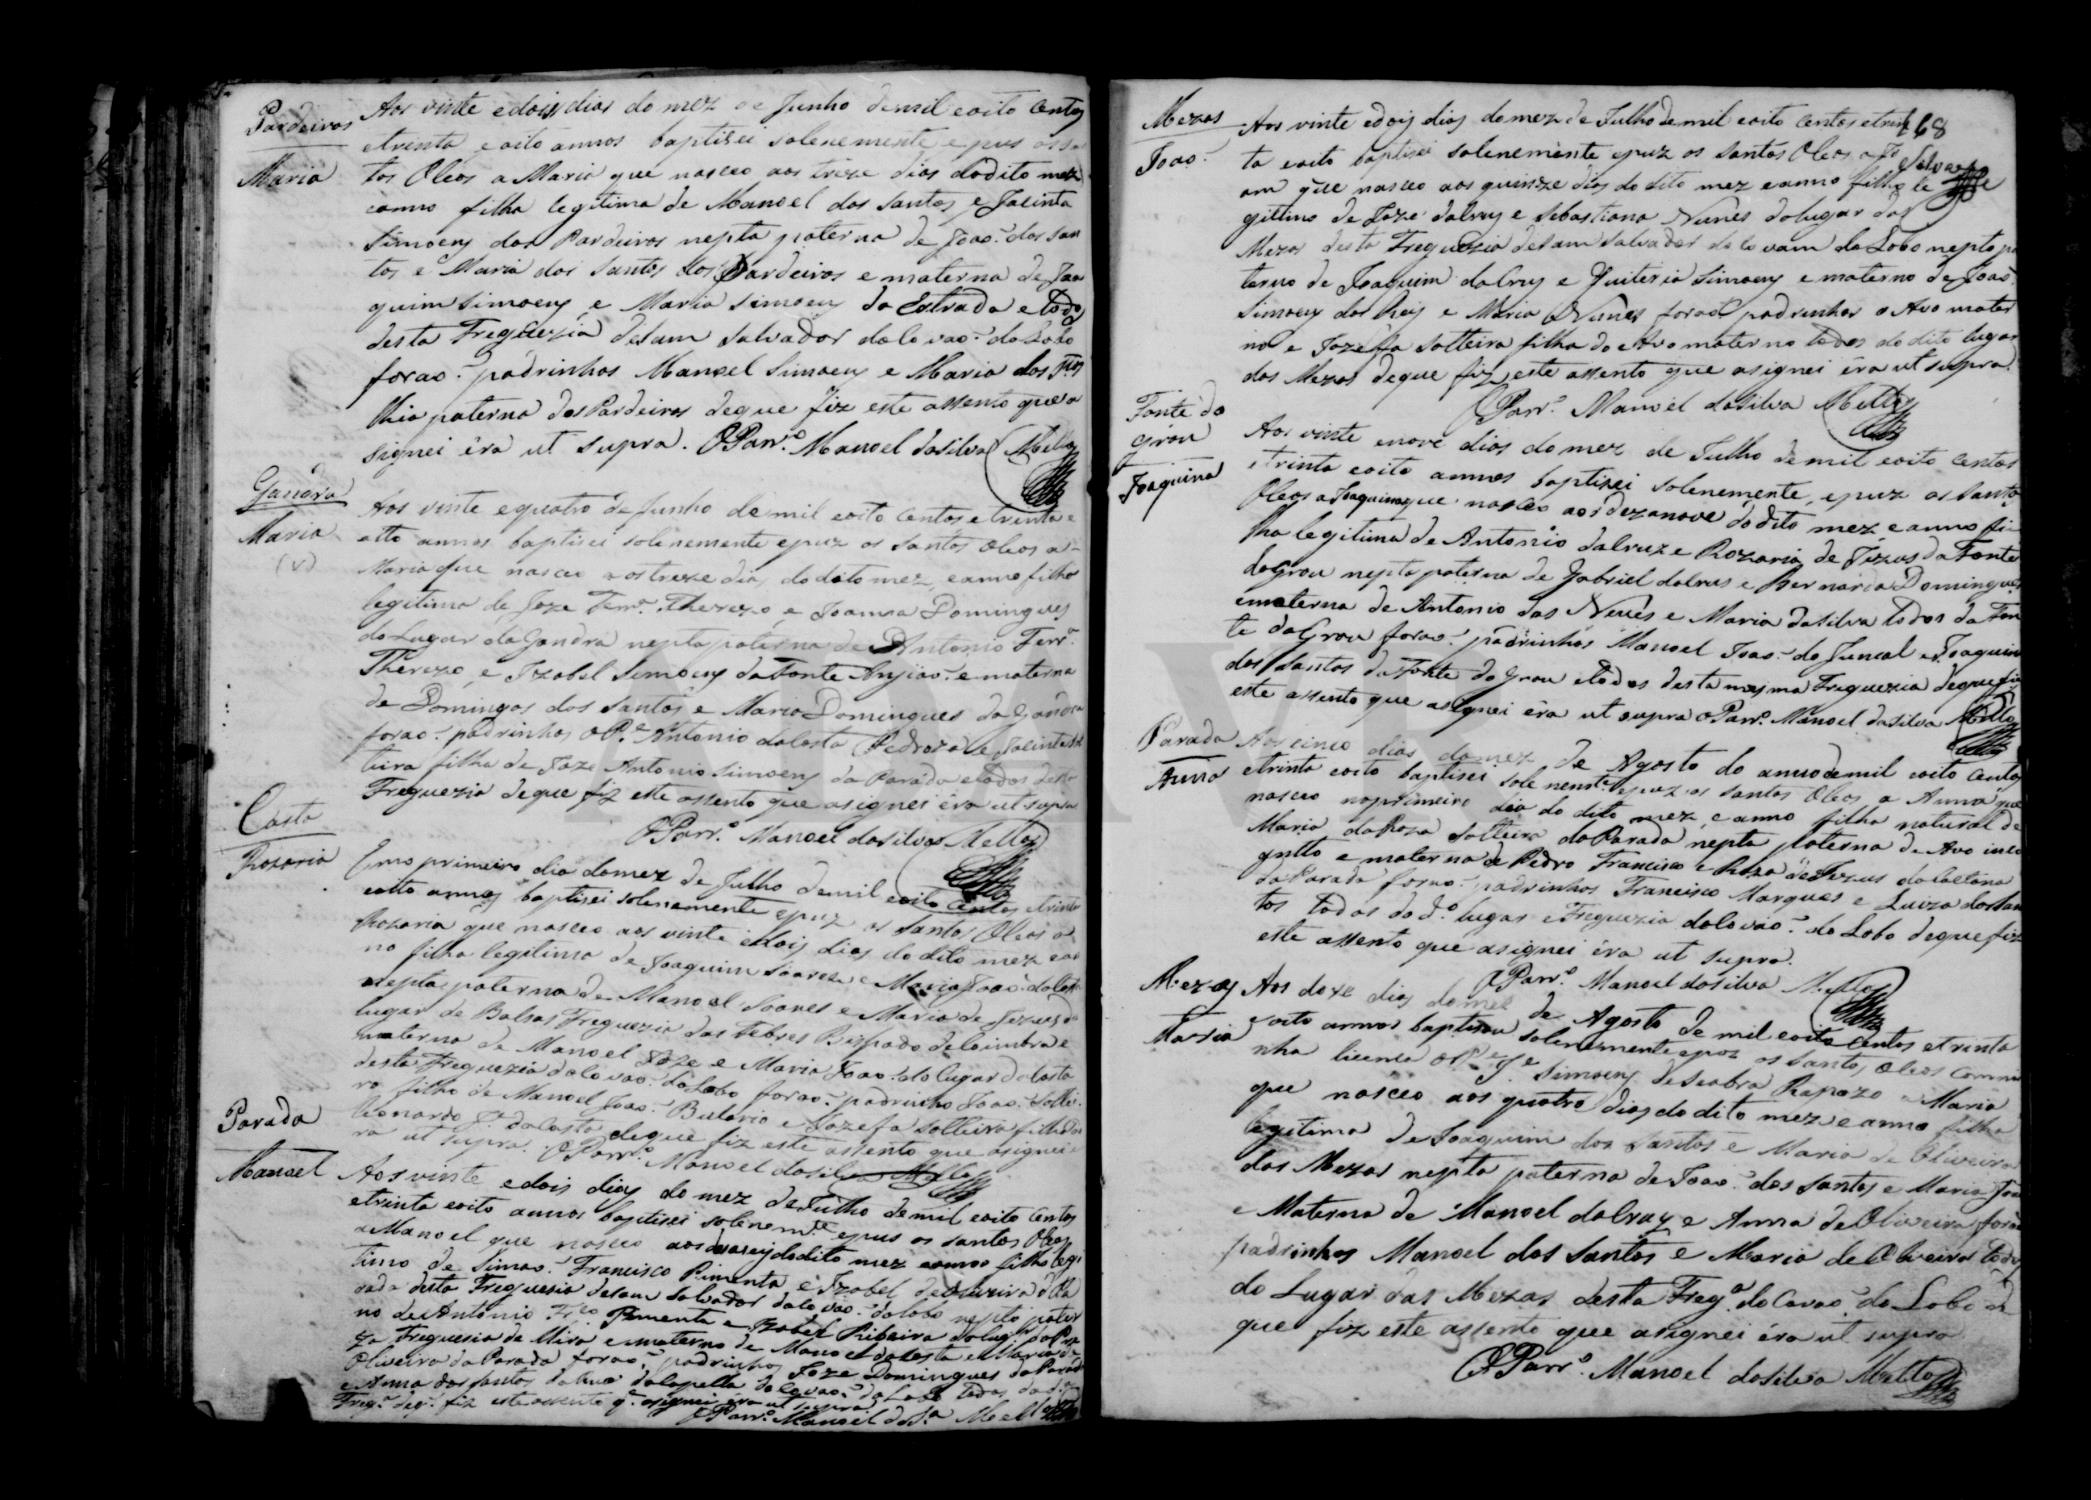 Pardeiros
Maria
Aos vinte edois dias do mez de Junho demil eoito centos
etrinta eoito annos baptisei solenemente epus os san
tos Oleos a Maria que nasceo aos treze dias dodito mez
eanno filha legitima de Manoel dos Santos e Jacinta
Simoens dos Pardeiros nepta paterna de Joaõ dos San
tos e Maria dos Santos dos Pardeiros e materna de Joa
quim Simoens e Maria Simoens da Estrada e todos
desta Freguezia deSam Salvador doCovaõ doLobo
foraõ padrinhos Manoel Simoens e Maria dos
thia paterna dosPardeiros deque fiz este assento que a
signei éra ut supra. OParr.º Manoel daSilva Mello
Gandra
Maria
(V)
Aos vinte equatro deJunho de mil eoito centos etrinta e
oito annos baptisei solenemente epuz os Santos oleos a
Maria que nasceo aostreze dias dodito mez, eanno filha
legitima de Joze Ferr.ª Therezo, e Joanna Domingues
doLugar daGandra nepta paterna de Antonio Ferr.ª
Therezo, e Izabel Simoens daFonte Anjiaõ e materna
de Domingos dos Santos e Maria Domingues da Gandra
foraõ padrinhos oP.e Antonio daCosta Pedroza e Jacinta Sol
teira filha de Joze Antonio Simoens da Parada etodos desta
Freguezia deque fiz este assento que asignei éra ut supra
OParr.º Manoel daSilva Mello
Costa
Rozaria
Emo primeiro dia domez de Julho demil eoito centos etrinta
eoito annos baptisei solenemente epuz os Santos Oleos a
Rozaria que nasceo aos vinte edois dias do dito mez ean
no filha legitima de Joaquim Soares e Maria Joaõ daCosta
nepta paterna de Manoel Soares e Maria de Jezus do
lugar de Balsas Freguezia das Febres Bispado deCoimbra e
materna de Manoel Joze e Maria Joaõ do lugar daCosta
desta Freguezia doCovaõ doLobo foraõ padrinho Joaõ Soltei
ro filho de Manoel Joaõ e Jozefa Solteira filha de
Leonardo daCosta deque fiz este assento que asignei e
ra ut supra. OParr.º Manoel daSilva Mello
Parada
Manoel
Aos vinte edois dias do mez deJulho demil eoito centos
etrinta eoito annos baptisei solenem.te epus os santos Oleos
a Manoel que nasceo aos dezaseis dodito mez eanno filho legi
timo de Simaõ Francisco Pimenta e Izabel deOliveira daPa
rada desta Freguesia deSam Salvador doCovaõ doLobo nepto pater
no de Antonio Fr.co Pimenta e Izabel Ribeira dolug.
Freguesia de Mira e materno de Manoel daCosta e Maria de
Oliveira da Parada foraõ padrinhos Joze Domingues da Parada
e Anna dos Santos daRua daCapella doCovaõ doLobo todos
Freg.ª deq.e fiz este assento q.e asignei éra ut supra
OParr.º Manoel daS.ª Mello
168
Mezas
Joaõ
Aos vinte edois dias domez de Julho demil eoito centos etrin
ta eoito baptisei solenemente epuz os Santos Oleos a Jo
am que nasceo aos quinze dias do dito mez eanno filho le
gitimo de Joze daCruz e Sebastiana Nunes dolugar das
Mezas desta Freguezia deSam Salvador do Covam do Lobo nepto pa
terno de Joaquim daCruz e Quiteria Simoens e materno de Joaõ
Simoens dos Reis e Maria Nunes foraõ padrinhos o Avo mater
no e Jozefa solteira filha do Avo materno todos do dito lugar
das Mezas deque fiz este assento que asignei éra ut supra
OParr.º Manoel daSilva Mello
Fonte do
Grou
Joaquina
Aos vinte enove dias do mez de Julho demil eoito centos
etrinta eoito annos baptisei solenemente, epuz os Santos
Oleos a Joaquina que nasceo aos dezanove dodito mez, eanno fi
lha legitima de Antonio daCruz e Rozaria de Jezus da Fonte
doGrou nepta paterna de Gabriel daCrus e Bernarda Domingues
ematerna de Antonio das Neves e Maria daSilva todos da Fon
te doGrou foraõ padrinhos Manoel Joaõ do Juncal e Joaquina
dos Santos daFonte do Grou etodos desta mesma Freguezia deque fiz
este assento que asignei éra ut supra oParr.º Manoel daSilva Mello
Parada
Anna
Aos cinco dias domez de Agosto do anno demil eoito centos
etrinta eoito baptisei solenem.te epuz os Santos Oleos a Anna que
nasceo noprimeiro dia do dito mez, e anno filha natural de
Maria daRoza Solteira daParada nepta paterna de Avo inco
gnito e materna de Pedro Francisco e Roza de Jezus doCaetano
daParada foraõ padrinhos Francisco Marques e Luiza dosSan
tos todos do d.º lugar eFreguezia doCovaõ do Lobo deque fiz
este assento que asignei éra ut supra.
OParr.º Manoel daSilva Mello
Mezas
Maria
Aos doze dias domez de Agosto de mil eoito centos etrinta
eoito annos baptisou solenemente epoz os Santos Oleos commi
nha licença oP.e Simoens deSeabra Rapozo a Maria
que nasceo aos quatro dias do dito mez e anno filha
legitima de Joaquim dos Santos e Maria de Oliveira
das Mezas nepta paterna de Joaõ dos Santos e Maria
e Materna de Manoel daCruz e Anna deOliveira foraõ
padrinhos Manoel dos Santos e Maria de Oliveira todos
do Lugar das Mezas desta Freg.ª do Covaõ do Lobo de
que fiz este assento que asignei era ut supra
OParr.º Manoel daSilva Mello